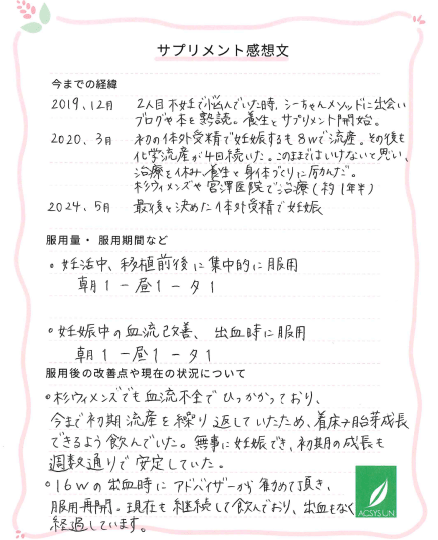 サプリメント感想文
今までの経緯
2019、12月 2人目不妊で悩んでいた時、シーちゃんメソッドに出会い
ブログや本を熟読。養生とサプリメント開始。
2020、3月 初の体外受精で妊娠するも8wで流産。その後も
化学流産が4回続いた。このままではいけないと思い、
治療を休み養生と身体づくりに励んだ。
杉ウィメンズや宮澤医院で治療(約1年半)
2024、5月 最後と決めた体外受精で妊娠
服用量・服用期間など
。妊活中、移植前後に集中的に服用
朝1-昼1-夕1
。妊娠中の血流改善、出血時に服用
朝1-昼1-夕1
服用後の改善点や現在の状況について
。杉ウィメンズでも血流不全でひっかかっており、
今まで初期流産を繰り返していたため、着床→胎芽成長
できるよう飲んでいた。無事に妊娠でき、初期の成長も
週数通りで安定していた。
。16wの出血時にアドバイザーから勧めて頂き、
服用再開。現在も継続して飲んでおり、出血もなく
経過しています。
ACSYSUN